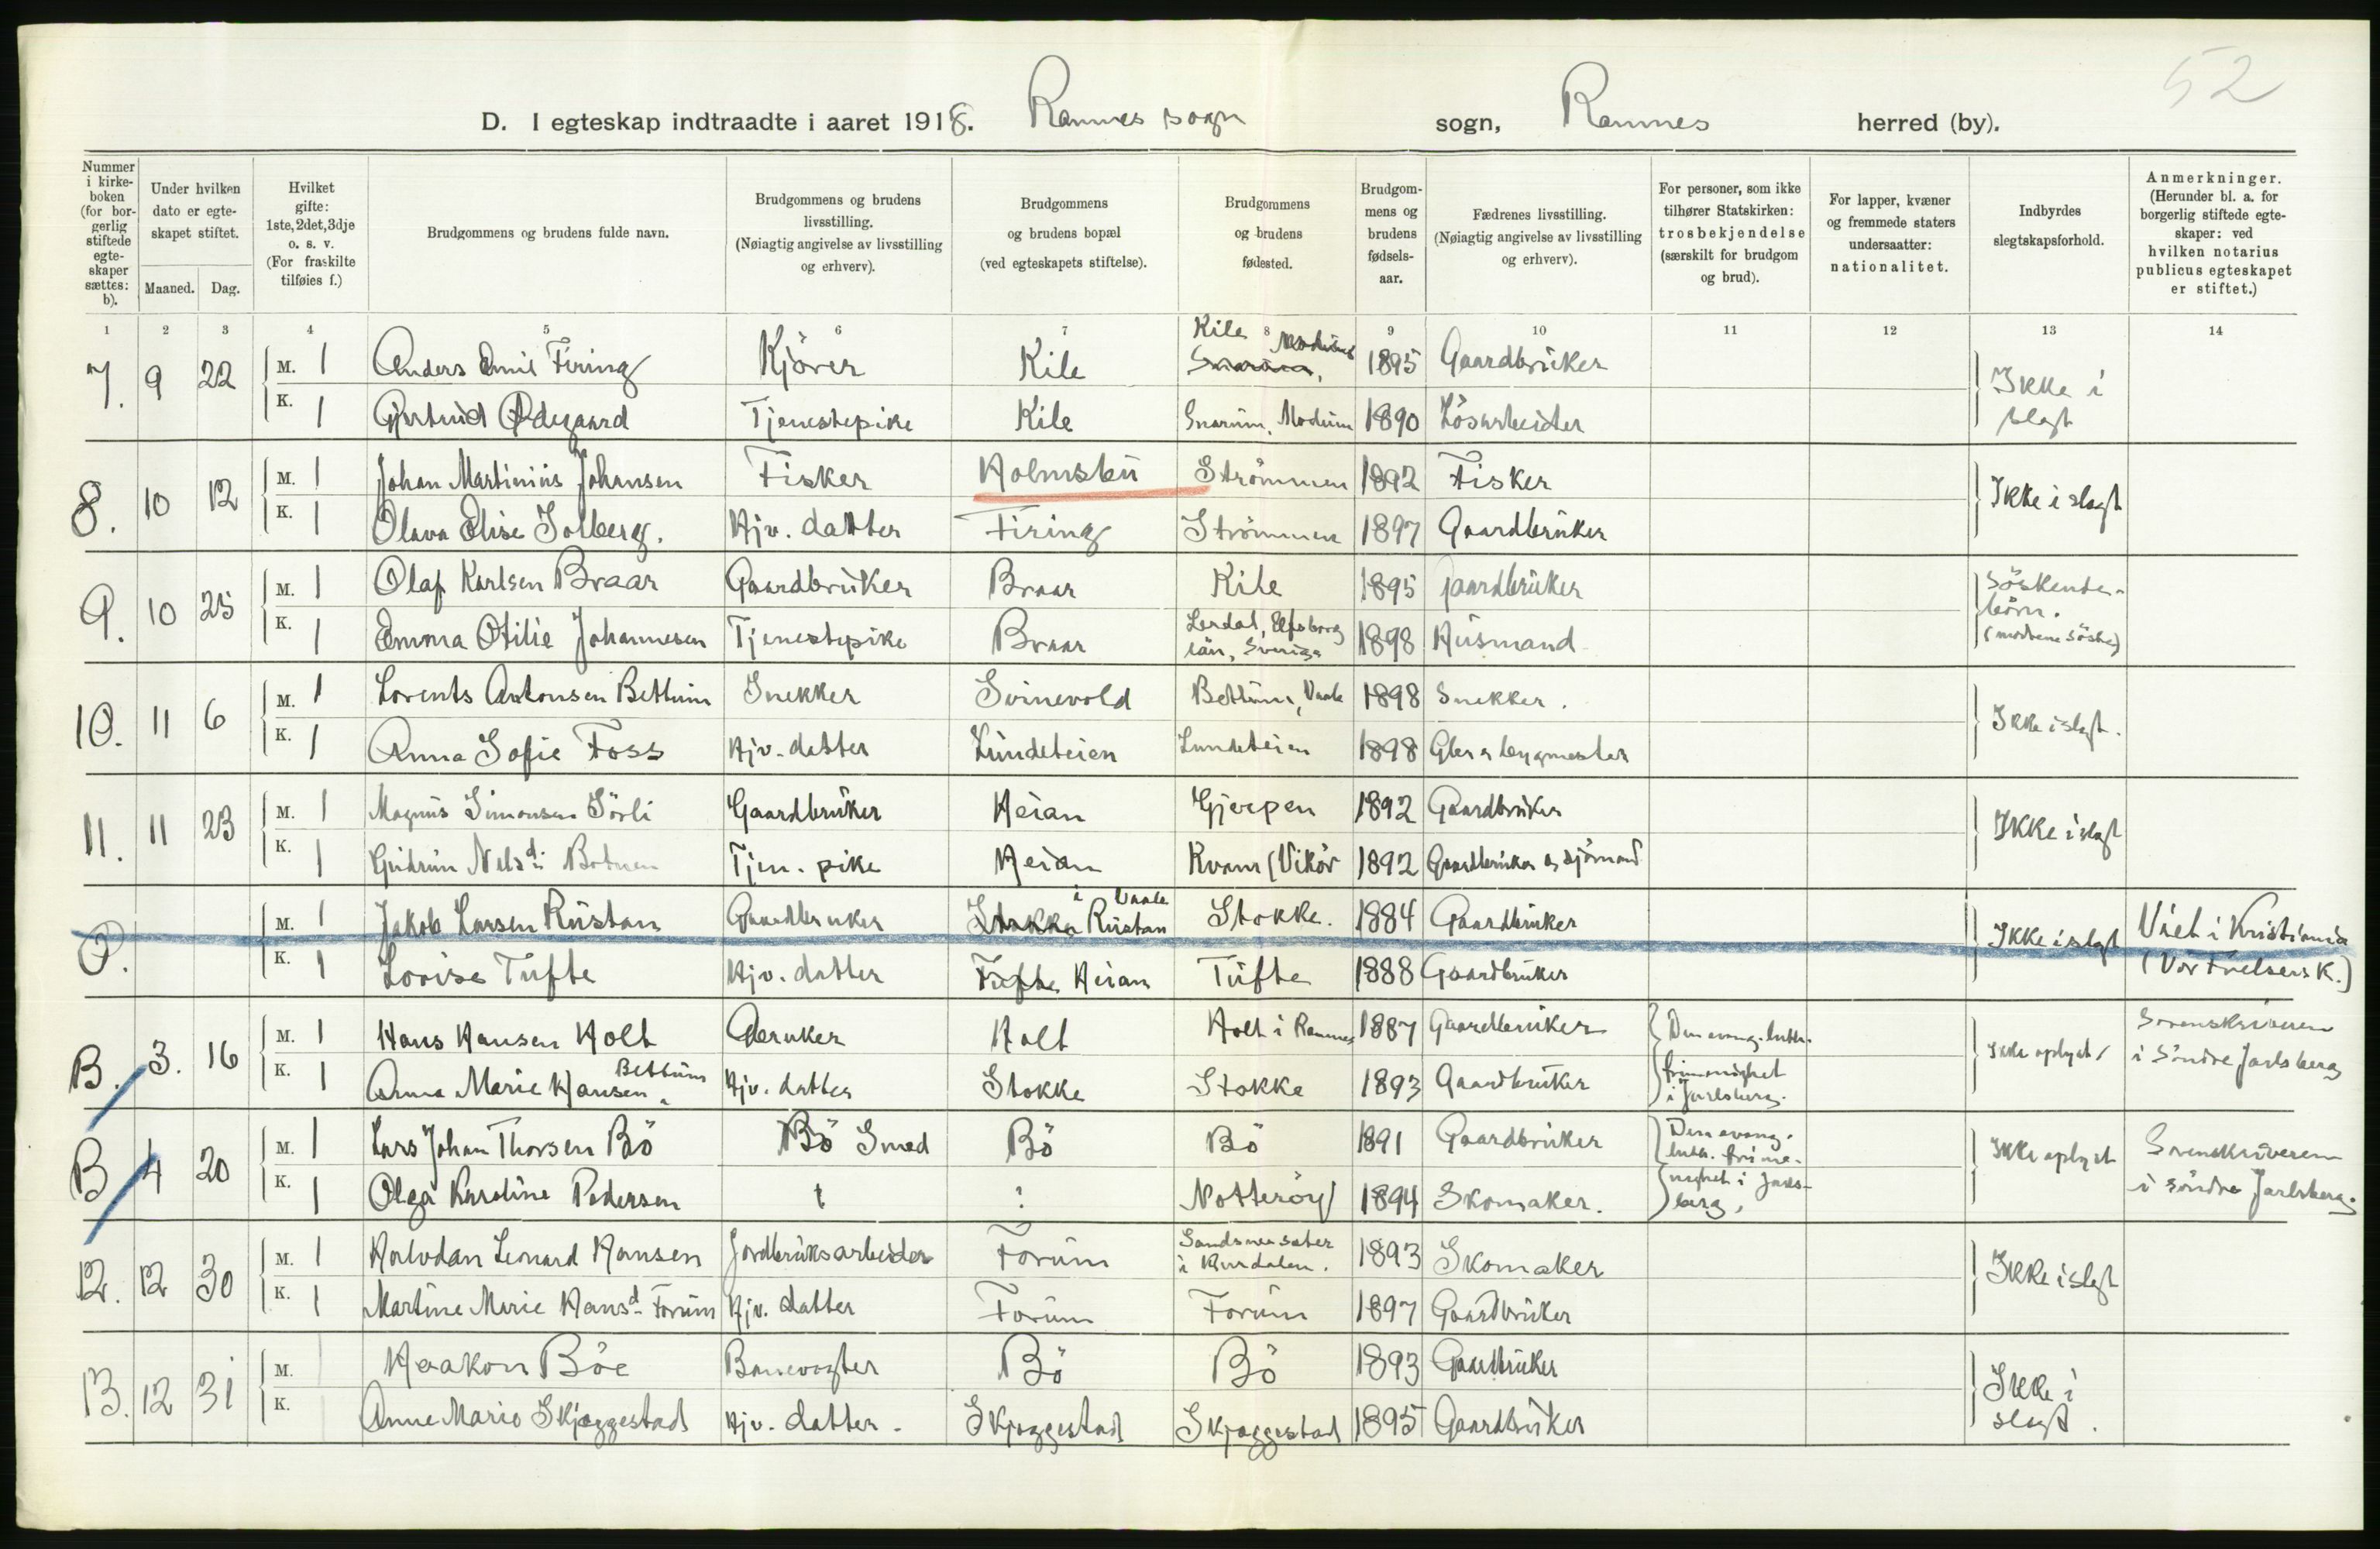 52
D. I egteskap indtraadte i aaret 1918. Ramnes sogn sogn, Ramnes herred (by).
Nummer i kirke-boken (for bor-gerlig stiftede egte-skaper sættes: b).
Under hvilken dato er egte-skapet stiftet.
Maaned. Dag.
Hvilket gifte: 1ste, 2det, 3dje o. s. v. (For fraskilte tilføies f.)
Brudgommens og brudens fulde navn.
Brudgommens og brudens livsstilling. (Nøiagtig angivelse av livsstilling og erhverv).
Brudgommens og brudens bopæl (ved egteskapets stiftelse).
Brudgommens og brudens fødested.
Brudgom-mens og brudens fødsels-aar.
Fædrenes livsstilling. (Nøiagtig angivelse av livsstilling og erhverv).
For personer, som ikke tilhører Statskirken: trosbekjendelse (særskilt for brudgom og brud).
For lapper, kvæner og fremmede staters undersaatter: nationalitet.
Indbyrdes slegtskapsforhold.
Anmerkninger. (Herunder bl. a. for borgerlig stiftede egte-skaper: ved hvilken notarius publicus egteskapet er stiftet.)
1 2 3 4 5 6 7 8 9 10 11 12 13 14
7. 9 22 M. 1 Anders Emil Firing Kjörer Kile Kile Snarum, Modum 1895 Gaardbruker Ikke i slegt
K. 1 Gjertrud Ødegaard Tjenestepike Kile Snarum, Modum 1890 Lösarbeider
8. 10 12 M. 1 Johan Martinius Johansen Fisker Holmsbu Strömmen 1892 Fisker Ikke i slegt
K. 1 Olava Elise Solberg. Hjv. datter Firing Strömmen 1897 Gaardbruker
9. 10 25 M. 1 Olaf Karlsen Braar Gaardbruker Braar Kile 1895 Gaardbruker Söskende-börn. (mödrene söstre)
K. 1 Emma Otilie Johannesen Tjenestepike Braar Lerdal, Elfsborg län, Sverige 1898 Husmand
10. 11 6 M. 1 Lorents Antonsen Bettum Snekker Svinevold Bettum, Vaale 1898 Snekker. Ikke i slegt.
K. 1 Anna Sofie Foss Hjv. datter Lundeteien Lundeteien 1898 Gbr. & bygmester
11. 11 23 M. 1 Magnus Simonsen Sörli Gaardbruker Heian Gjerpen 1892 Gaardbruker Ikke i slegt
K. 1 Gudrun Nelsd. Botnen Tjen. pike Heian Kvam (Vikör 1892 Gaardbruker og sjömand
O. M. 1 Jakob Larsen Rustan Gaardbruker Stokke Rustan i Vaale Stokke. 1884 Gaardbruker Ikke i slegt Viet i Kristiania
K. 1 Lovise Tufte Hjv. datter Tufte Heian Tufte 1888 Gaardbruker (Vor Frelsers K.)
B. 3. 16 M. 1 Hans Hansen Holt Gbruker Holt Holt i Ramnes 1887 Gaardbruker Den evang. luth. frimenighet i Jarlsberg. Ikke oplyst Sorenskriveren i Söndre Jarlsberg
K. 1 Anna Marie Hansen Bettum Hjv. datter Stokke Stokke 1893 Gaardbruker
B 4 20 M. 1 Lars Johan Thorsen Bö Bö Smed Bö Bö 1891 Gaardbruker Den evang. luth. frime-nighet i Jarls-berg, Ikke oplyst Sorenskriveren i Söndre Jarlsberg.
K. 1 Olga Karoline Pedersen ? ? Nötteröy 1894 Skomaker.
12. 12 30 M. 1 Halvdan Leonard Hansen Jordbruksarbeider Forum 1893 Skomaker Ikke i slegt
K. 1 Martine Marie Hansd. Forum Hjv. datter Forum Forum 1897 Gaardbruker
13. 12 31 M. Haakon Böe Banevogter Bö Bö 1893 Gaardbruker Ikke i slegt.
K. Anne Marie Skjeggestad Hjv. datter. Skjeggestad Skjeggestad 1895 Gaardbruker